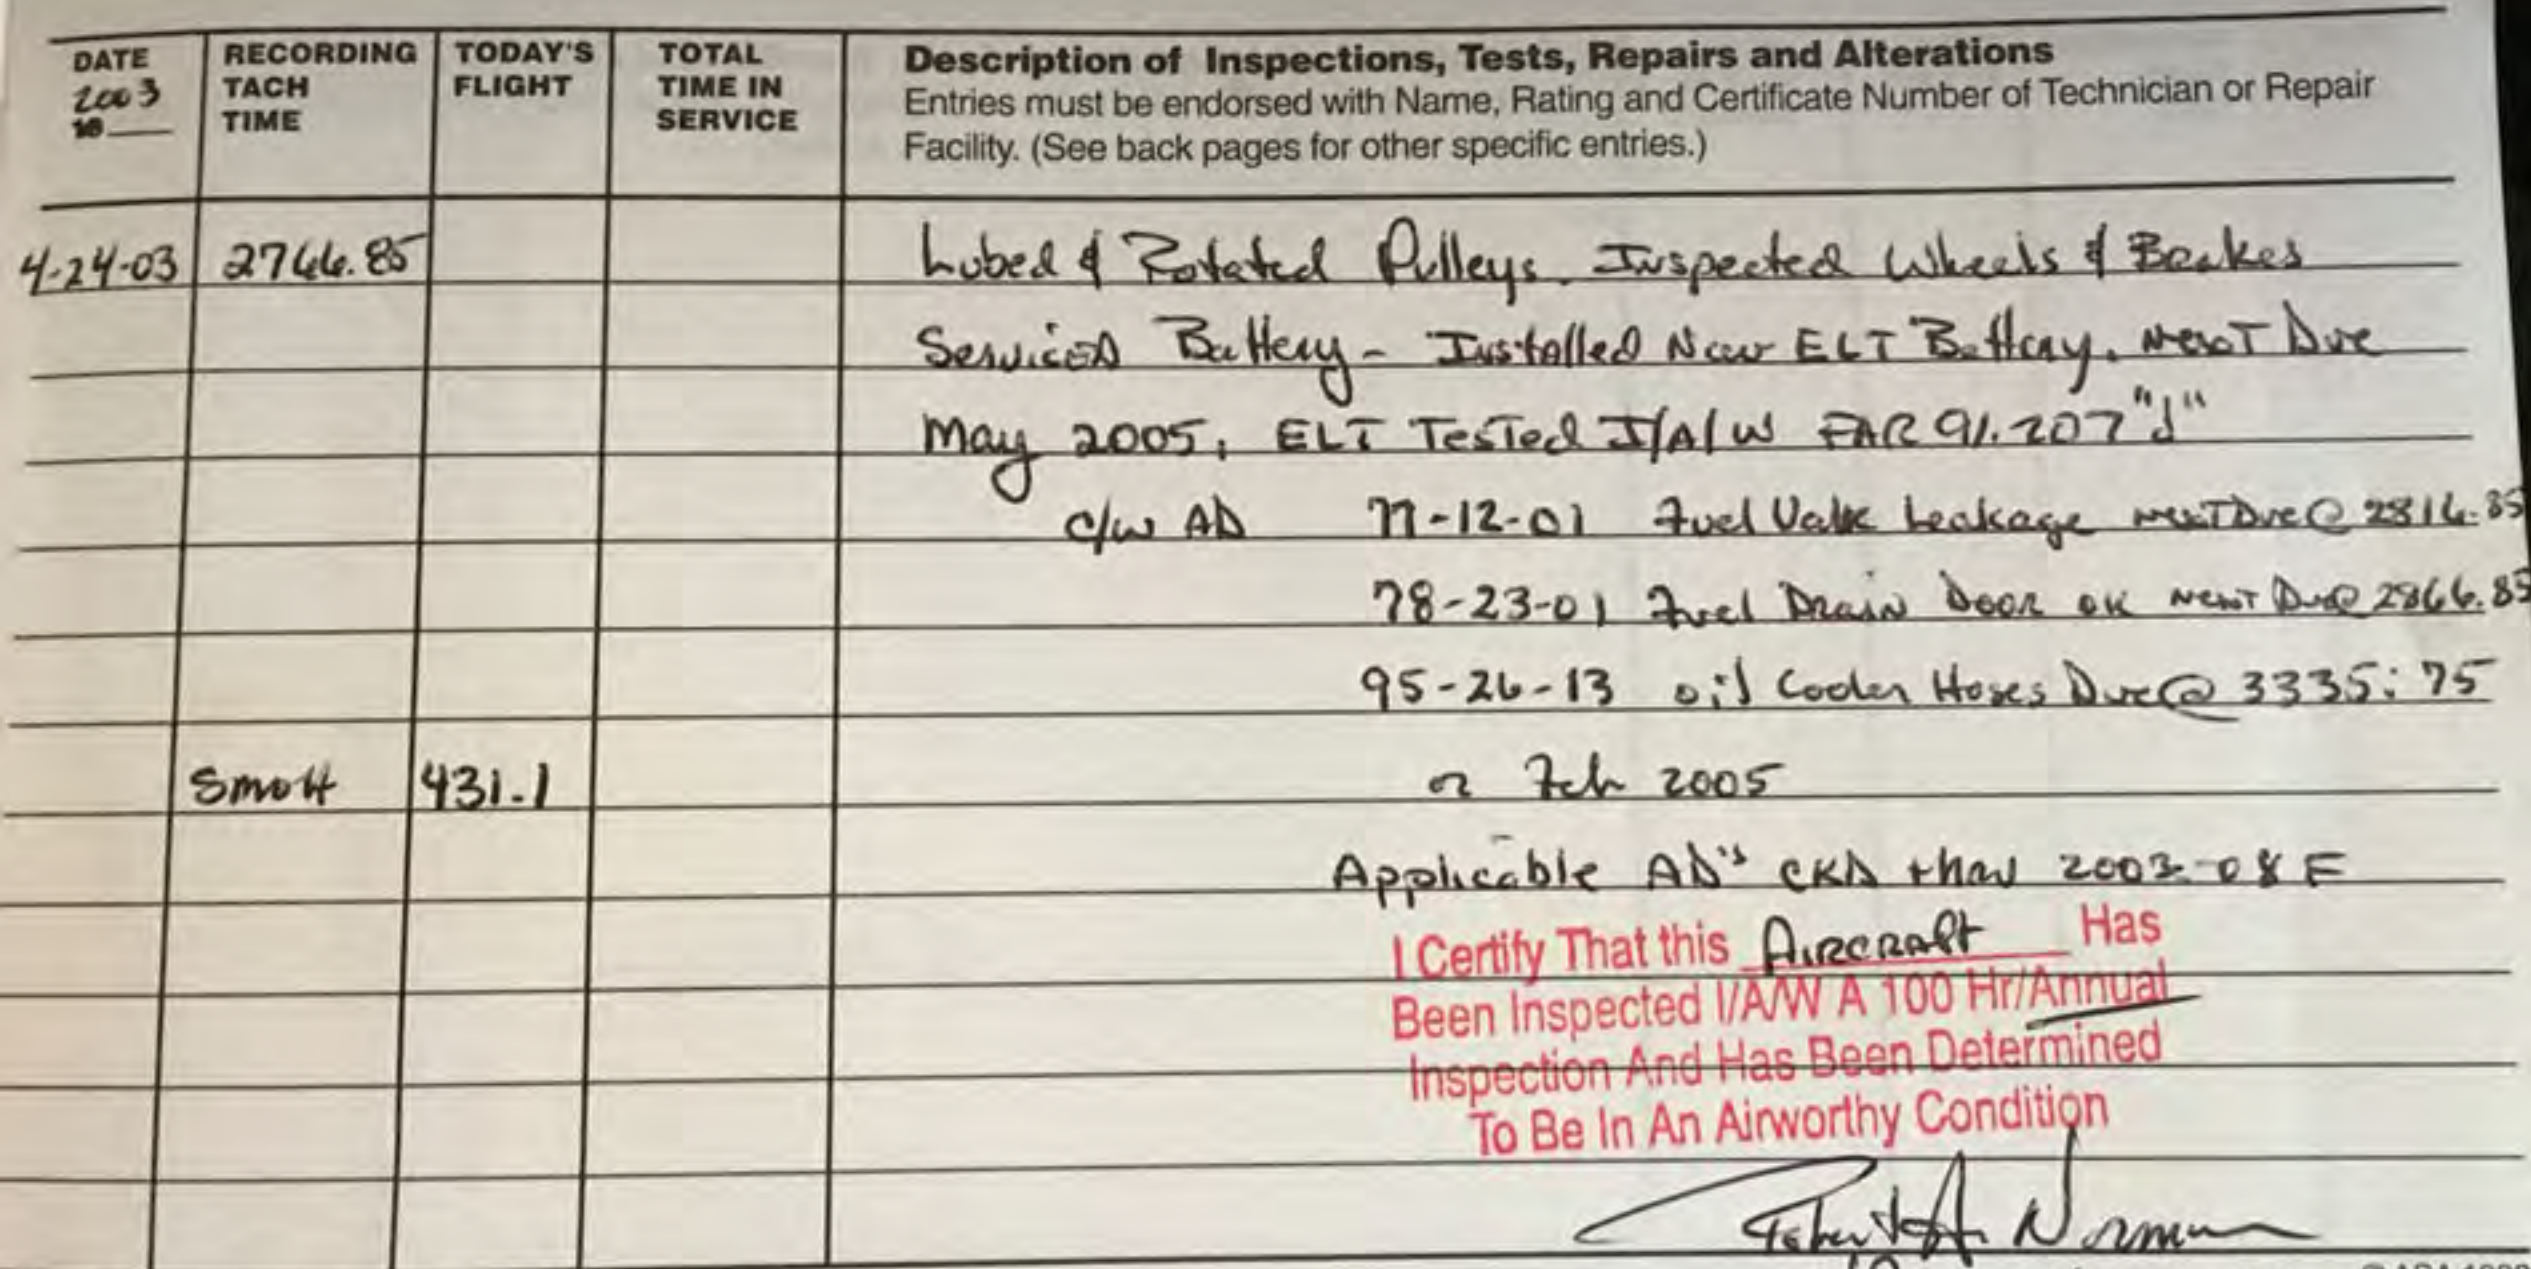 DATE RECORDING TODAY'S TOTAL Description of Inspections, Tests, Repairs and Alterations
2003 TACH FLIGHT TIME IN Entries must be endorsed with Name, Rating and Certificate Number of Technician or Repair
19 TIME SERVICE Facility. (See back pages for other specific entries.)
4-24-03 2766.85 Lubed & Rotated Pulleys. Inspected Wheels & Brakes
Serviced Battery - Installed New ELT Battery. Next Due
May 2005, ELT Tested I/A/W FAR 91.207 "d"
C/W AD 77-12-01 Fuel Valve Leakage Next Due @ 2816.85
78-23-01 Fuel Drain Door OK Next Due @ 2866.85
95-26-13 oil Cooler Hoses Due @ 3335.75
Smoh 431.1 or Feb 2005
Applicable AD's CKD thru 2003-08 E
I Certify That this Aircraft Has
Been Inspected I/A/W A 100 Hr/Annual
Inspection And Has Been Determined
To Be In An Airworthy Condition
Robert A. Norman